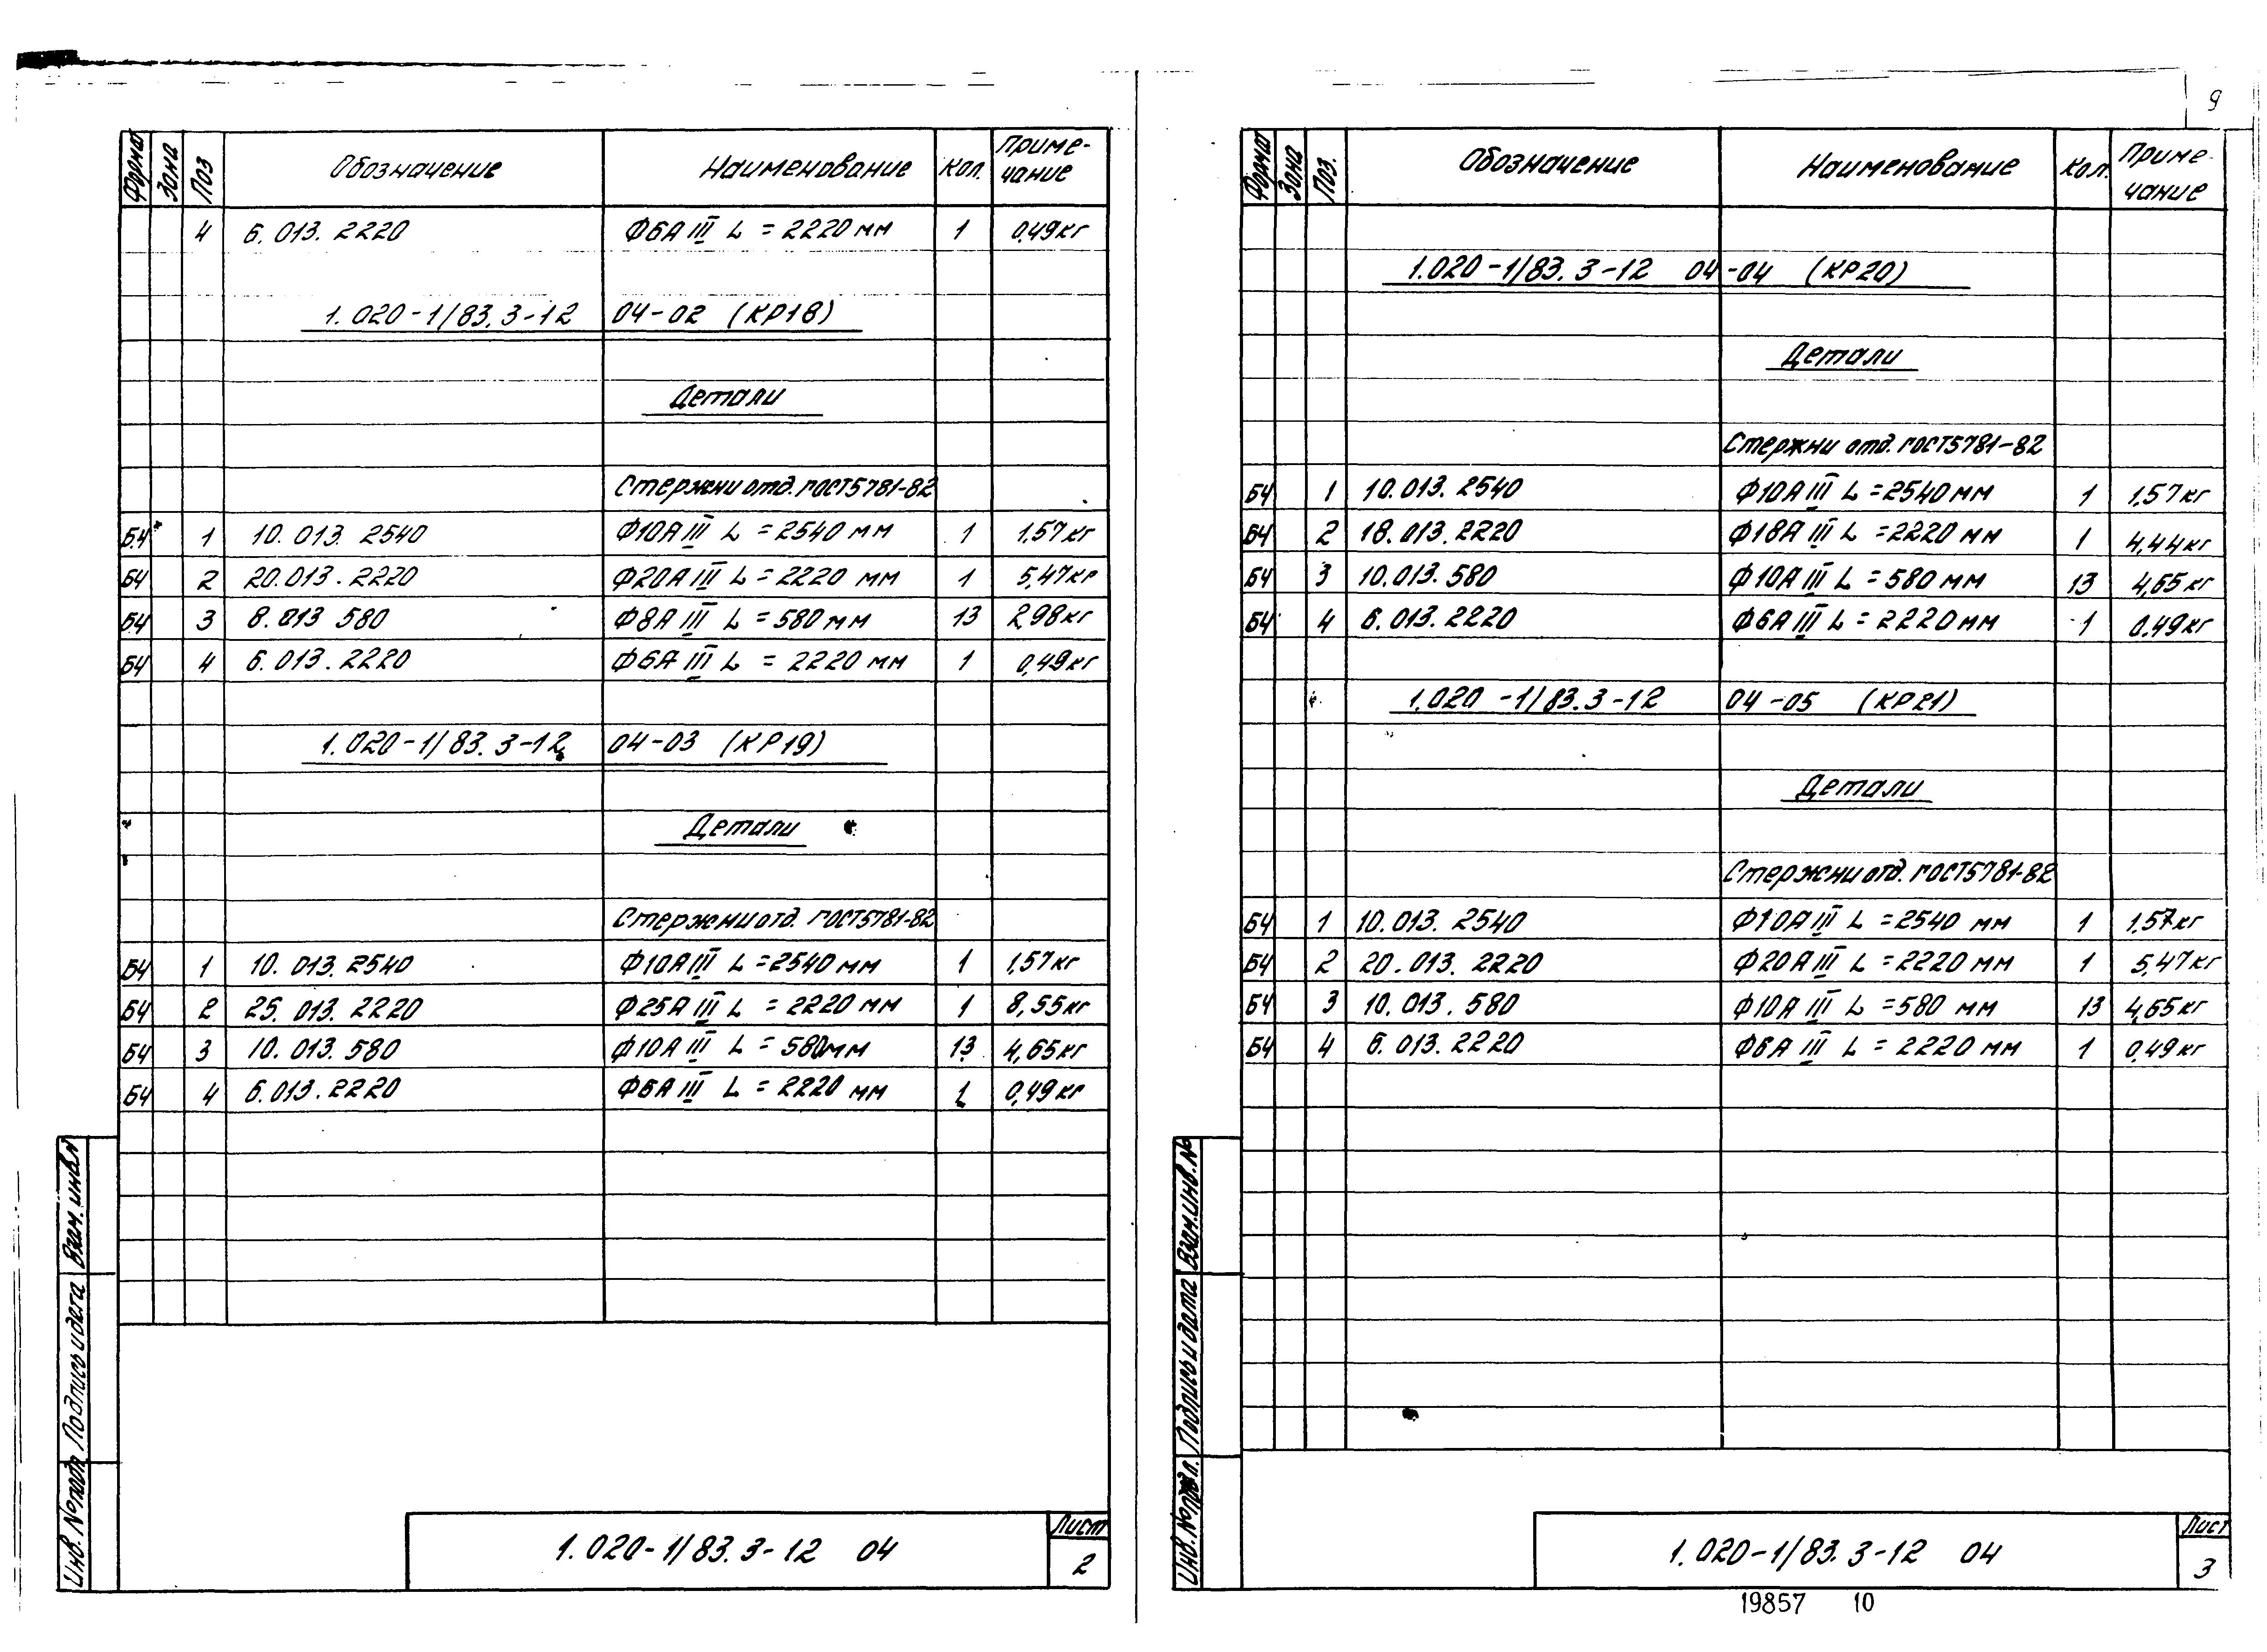 9
Формат Зона Поз Обозначение Наименование Кол. Приме-
чание
4 6.013.2220 Ф6АIII L=2220 мм 1 0,49кг
1.020-1/83.3-12 04-02 (КР18)
Детали
Стержни отд. ГОСТ5781-82
БЧ 1 10.013.2540 Ф10АIII L=2540 мм 1 1,57кг
БЧ 2 20.013.2220 Ф20АIII L=2220 мм 1 5,47кг
БЧ 3 8.013 580 Ф8АIII L=580мм 13 2,98кг
БЧ 4 6.013.2220 Ф6АIII L=2220 мм 1 0,49кг
1.020-1/83.3-12 04-03 (КР19)
Детали
Стержни отд. ГОСТ5781-82
БЧ 1 10.013.2540 Ф10АIII L=2540 мм 1 1,57кг
БЧ 2 25.013.2220 Ф25АIII L=2220 мм 1 8,55кг
БЧ 3 10.013.580 Ф10АIII L=580мм 13 4,65кг
БЧ 4 6.013.2220 Ф6АIII L=2220 мм 1 0,49кг
Инв. № подл Подпись и дата Взам. инв. №
1.020-1/83.3-12 04
Лист
2
Формат Зона Поз. Обозначение Наименование Кол. Приме-
чание
1.020-1/83.3-12 04-04 (КР20)
Детали
Стержни отд. ГОСТ5781-82
БЧ 1 10.013.2540 Ф10АIII L=2540мм 1 1,57кг
БЧ 2 18.013.2220 Ф18АIII L=2220 мм 1 4,44кг
БЧ 3 10.013.580 Ф10АIII L=580 мм 13 4,65кг
БЧ 4 6.013.2220 Ф6АIII L=2220мм 1 0,49кг
1.020-1/83.3-12 04-05 (КР21)
Детали
Стержни отд. ГОСТ5781-82
БЧ 1 10.013.2540 Ф10АIII L=2540 мм 1 1,57кг
БЧ 2 20.013.2220 Ф20АIII L=2220мм 1 5,47кг
БЧ 3 10.013.580 Ф10АIII L=580 мм 13 4,65кг
БЧ 4 6.013.2220 Ф6АIII L=2220 мм 1 0,49кг
Инв. № подл. Подпись и дата Взам. инв. №
1.020-1/83.3-12 04
Лист
3
19857 10